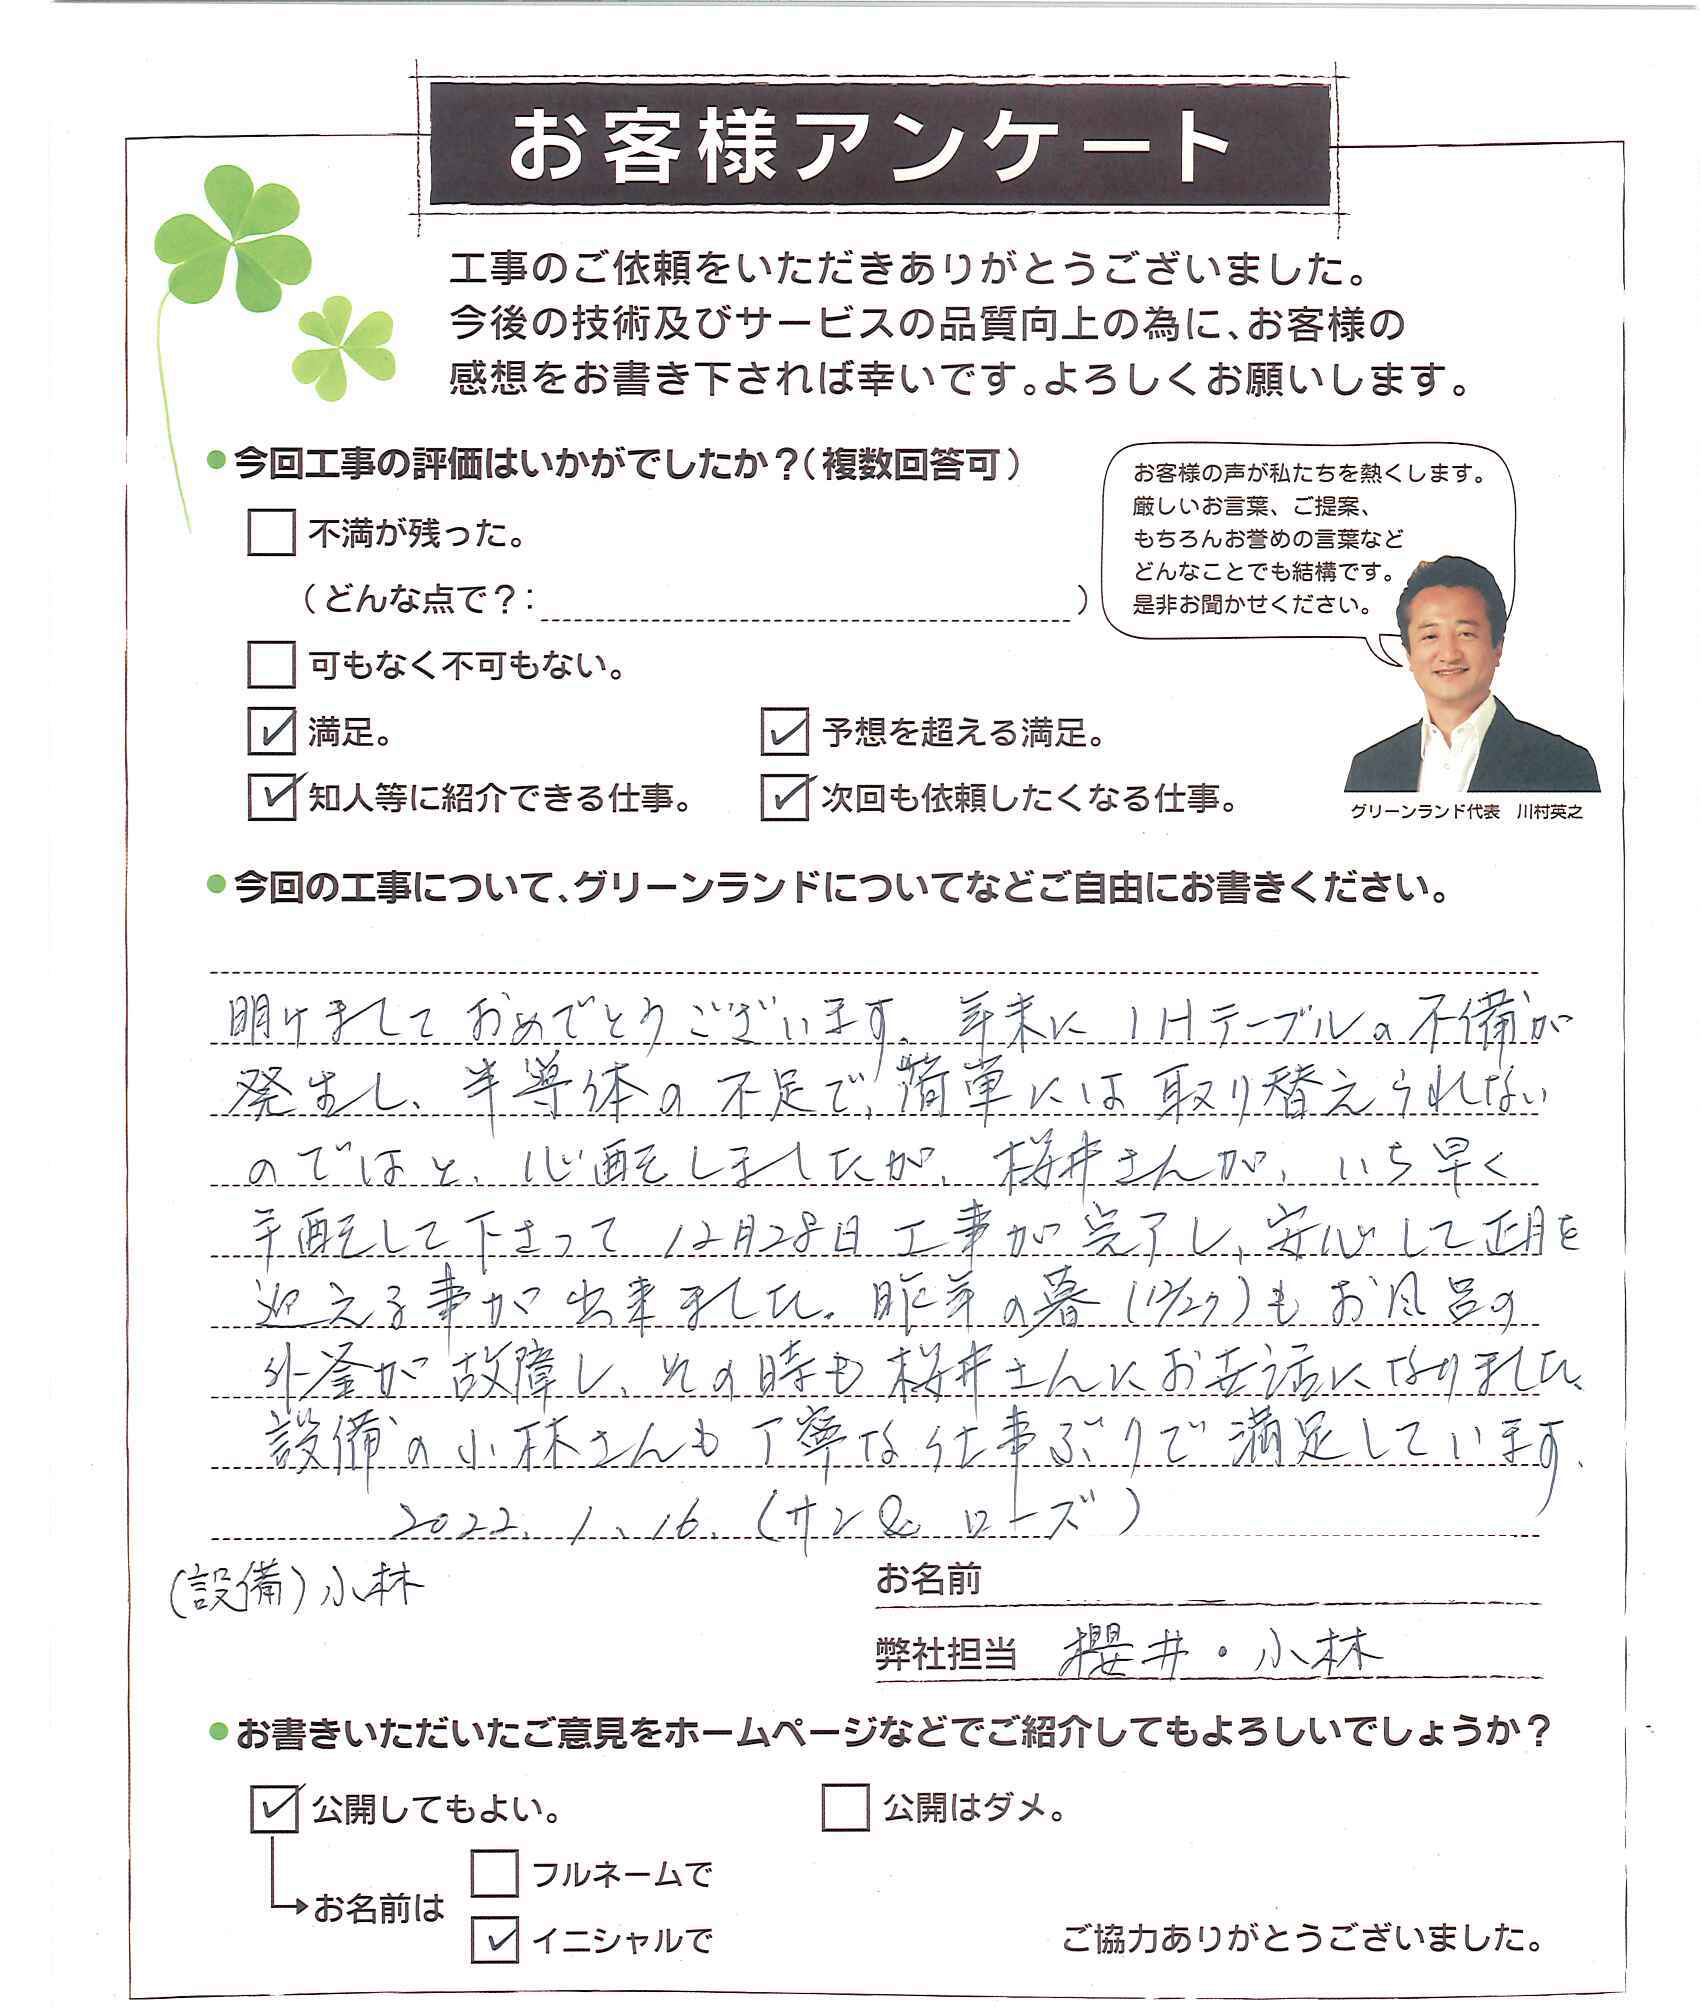 お客様アンケート
工事のご依頼をいただきありがとうございました。
今後の技術及びサービスの品質向上の為に、お客様の
感想をお書き下されば幸いです。よろしくお願いします。
今回工事の評価はいかがでしたか？（複数回答可）
不満が残った。
（どんな点で？：　　　）
可もなく不可もない。
満足。
予想を超える満足。
知人等に紹介できる仕事。
次回も依頼したくなる仕事。
お客様の声が私たちを熱くします。
厳しいお言葉、ご提案、
もちろんお誉めの言葉など
どんなことでも結構です。
是非お聞かせください。
グリーンランド代表　川村英之
今回の工事について、グリーンランドについてなどご自由にお書きください。
明けましておめでとうございます。年末にIHテーブルの不備が
発生し、半導体の不足で、簡単には取り替えられない
のではと、心配をしましたが、桜井さんが、いち早く
手配をして下さって12月28日工事が完了し、安心して正月を
迎える事が出来ました。昨年の暮（12/27）もお風呂の
外釜が故障し、その時も桜井さんにお世話になりました、
設備の小林さんも丁寧な仕事ぶりで満足しています、
2022.1.16.（サン＆ローズ）
（設備）小林
お名前
弊社担当　櫻井・小林
お書きいただいたご意見をホームページなどでご紹介してもよろしいでしょうか？
公開してもよい。
公開はダメ。
お名前は
フルネームで
イニシャルで
ご協力ありがとうございました。